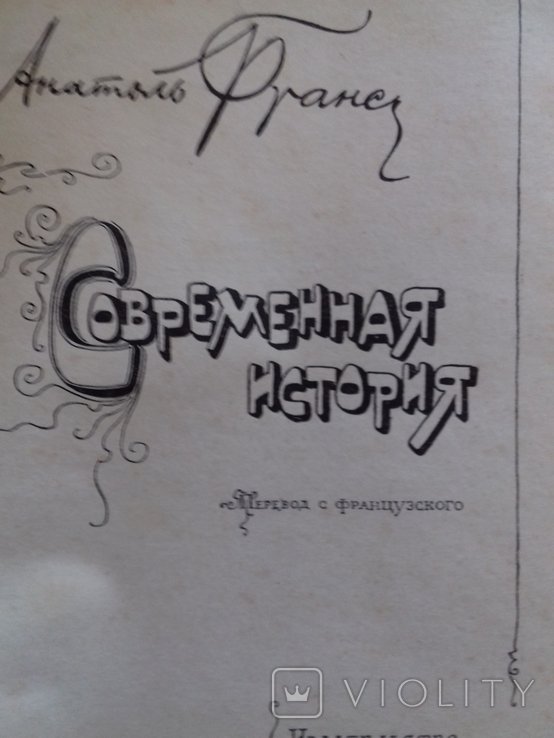 Анатоль Франс
Современная
история
Перевод с французского
VIOLITY